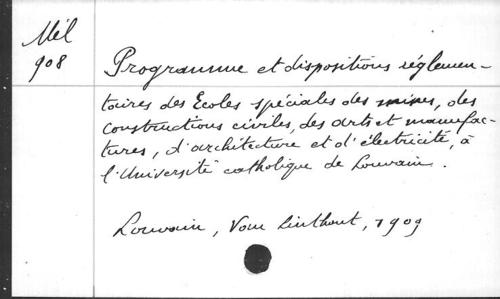 Mél
908
Programme et dispositions réglemen-
taires des Ecoles spéciales des mines, des
constructions civiles, des arts et manufac-
tures, d'architecture et d'électricité, à
l'Université catholique de Louvain.
Louvain, Van Linthout, 1909